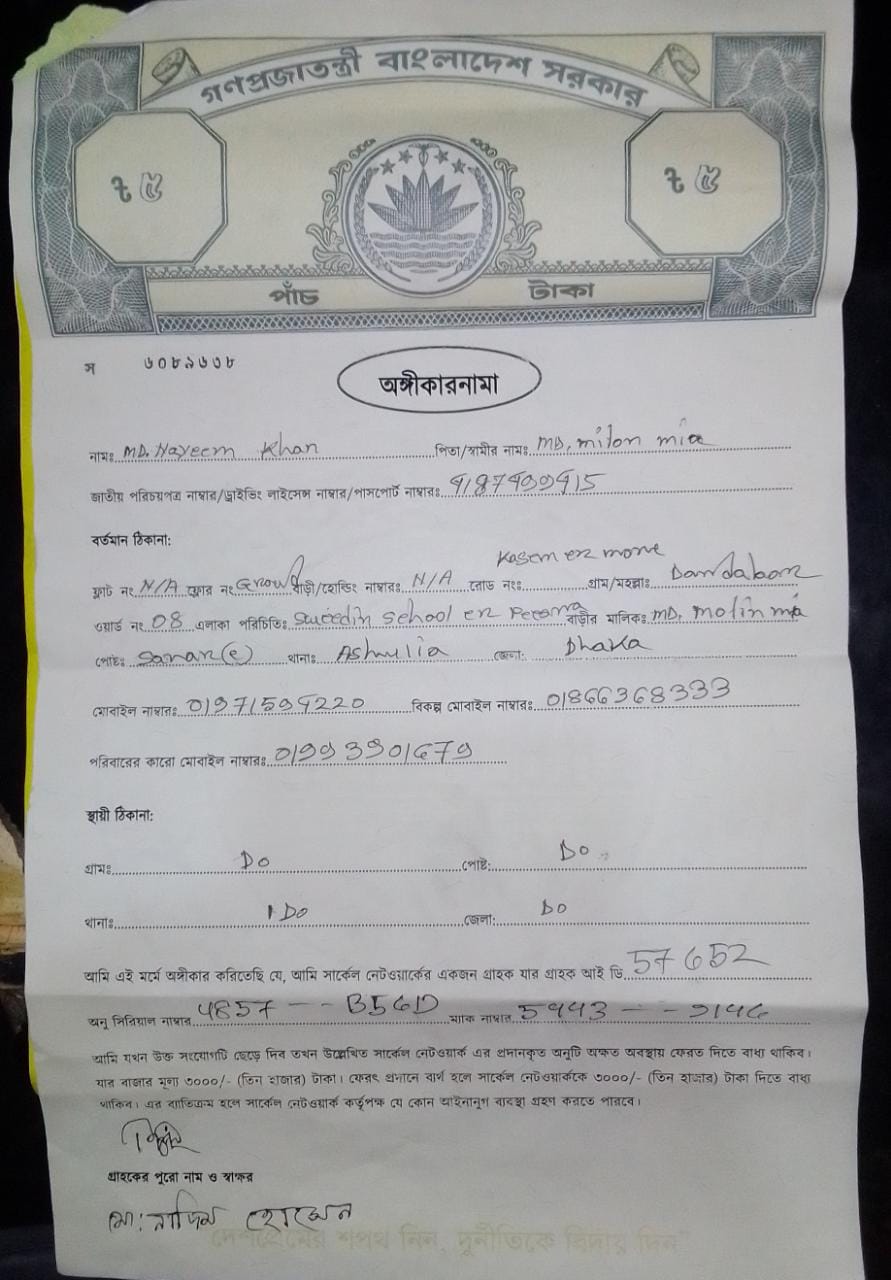 গণপ্রজাতন্ত্রী বাংলাদেশ সরকার
ট ৫ ট ৫
পাঁচ টাকা
স ৬০৮৯৬৩৮
অঙ্গীকারনামা
নামঃ MD. Nayeem Khan পিতা/স্বামীর নামঃ MD, milon mia
জাতীয় পরিচয়পত্র নাম্বার/ড্রাইভিং লাইসেন্স নাম্বার/পাসপোর্ট নাম্বারঃ
বর্তমান ঠিকানা:
Kasem er more
ফ্লাট নং N/A ফ্লোর নং বাড়ী/হোল্ডিং নাম্বারঃ N/A রোড নংঃ গ্রাম/মহল্লাঃ Dandabor
ওয়ার্ড নং 08 এলাকা পরিচিতিঃ School er বাড়ীর মালিকঃ MD, molin mia
পোষ্টঃ থানাঃ Ashulia জেলা: Dhaka
মোবাইল নাম্বারঃ 01971594220 বিকল্প মোবাইল নাম্বারঃ 01866368333
পরিবারের কারো মোবাইল নাম্বারঃ
স্থায়ী ঠিকানা:
গ্রামঃ Do পোষ্ট: Do
থানাঃ Do জেলা: Do
আমি এই মর্মে অঙ্গীকার করিতেছি যে, আমি সার্কেল নেটওয়ার্কের একজন গ্রাহক যার গ্রাহক আই ডি 57652
অনু সিরিয়াল নাম্বার 4857 --- B56D ম্যাক নাম্বার
আমি যখন উক্ত সংযোগটি ছেড়ে দিব তখন উল্লেখিত সার্কেল নেটওয়ার্ক এর প্রদানকৃত অনুটি অক্ষত অবস্থায় ফেরত দিতে বাধ্য থাকিব।
যার বাজার মূল্য ৩০০০/- (তিন হাজার) টাকা। ফেরৎ প্রদানে ব্যর্থ হলে সার্কেল নেটওয়ার্ককে ৩০০০/- (তিন হাজার) টাকা দিতে বাধ্য
থাকিব। এর ব্যতিক্রম হলে সার্কেল নেটওয়ার্ক কর্তৃপক্ষ যে কোন আইনানুগ ব্যবস্থা গ্রহণ করতে পারবে।
গ্রাহকের পুরো নাম ও স্বাক্ষর
মো: নাদিম হোসেন
"দেশপ্রেমের শপথ নিন, দুর্নীতিকে বিদায় দিন"